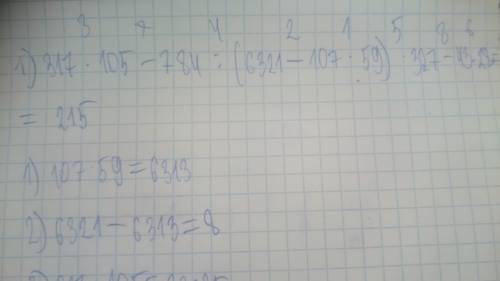 3 7 4 2 1 5 8 6
1) 317 · 105 - 784 : (6321 - 107 · 59) · 327 -
= 215
1) 107 · 59 = 6313
2) 6321 - 6313 = 8